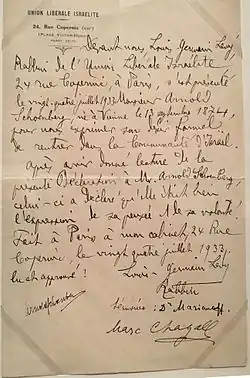 UNION LIBÉRALE ISRAÉLITE
24, Rue Copernic (XVIe)
(PLACE VICTOR-HUGO)
PARIS
Devant nous Louis Germain Lévy
Rabbin de l'Union Libérale Israélite
24 rue Copernic, à Paris, s'est présenté
le vingt-quatre juillet 1933 Monsieur Arnold
Schoenberg, né à Vienne le 13 septembre 1874,
pour nous exprimer son désir formel
de rentrer dans la Communauté d'Israël.
Après avoir donné lecture de la
présente Déclaration à Mr. Arnold Schoenberg
celui-ci a déclaré qu'elle était bien
l'expression de sa pensée et de sa volonté.
Fait à Paris à mon cabinet 24 Rue
Copernic, le vingt quatre juillet 1933.
lu et approuvé!
Louis-Germain Lévy
Rabbin
Témoins: Dr Marianoff
Marc Chagall